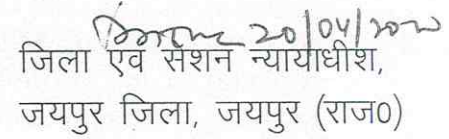 20/04/2020
जिला एवं सेशन न्यायाधीश,
जयपुर जिला, जयपुर (राज0)